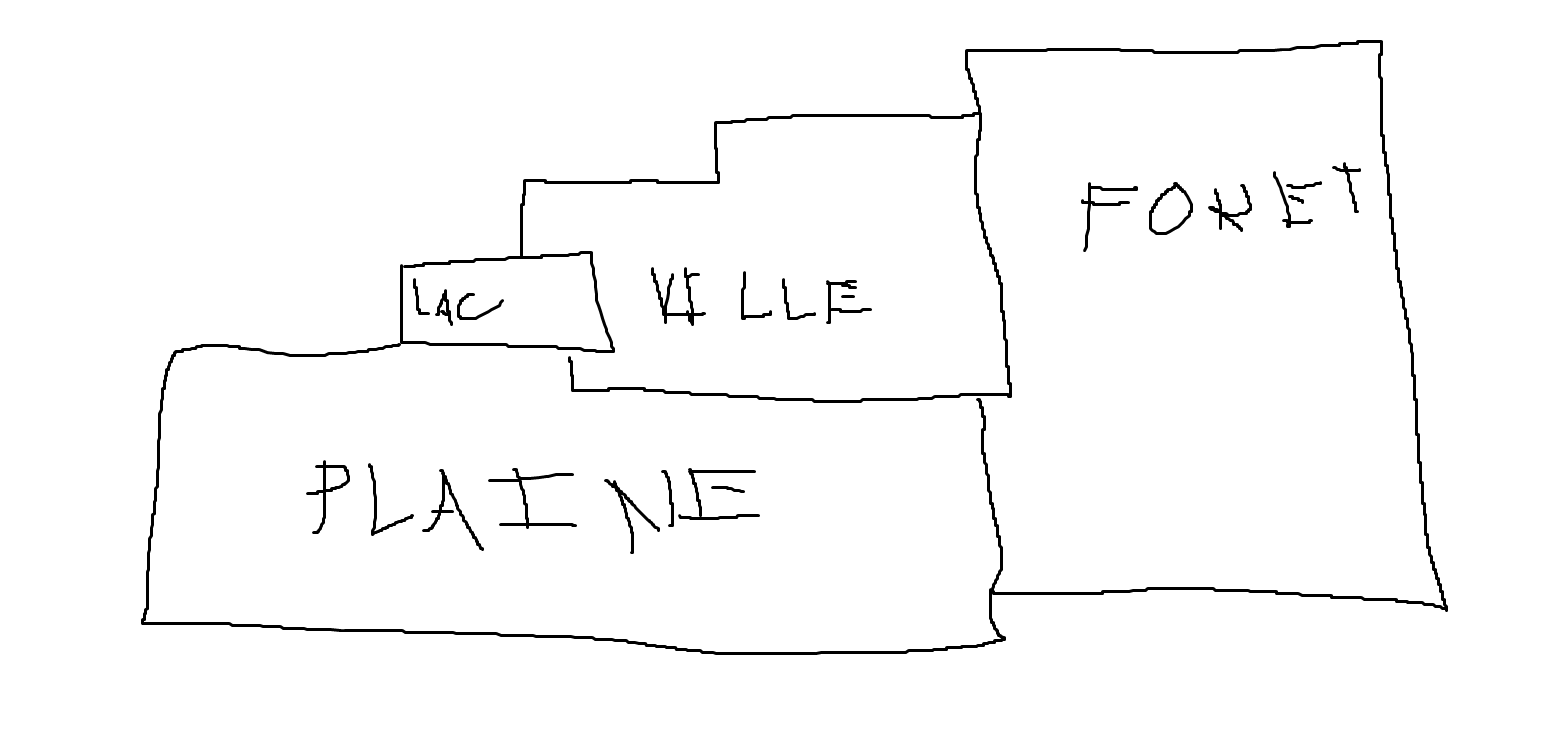 FORET
LAC
VILLE
PLAINE